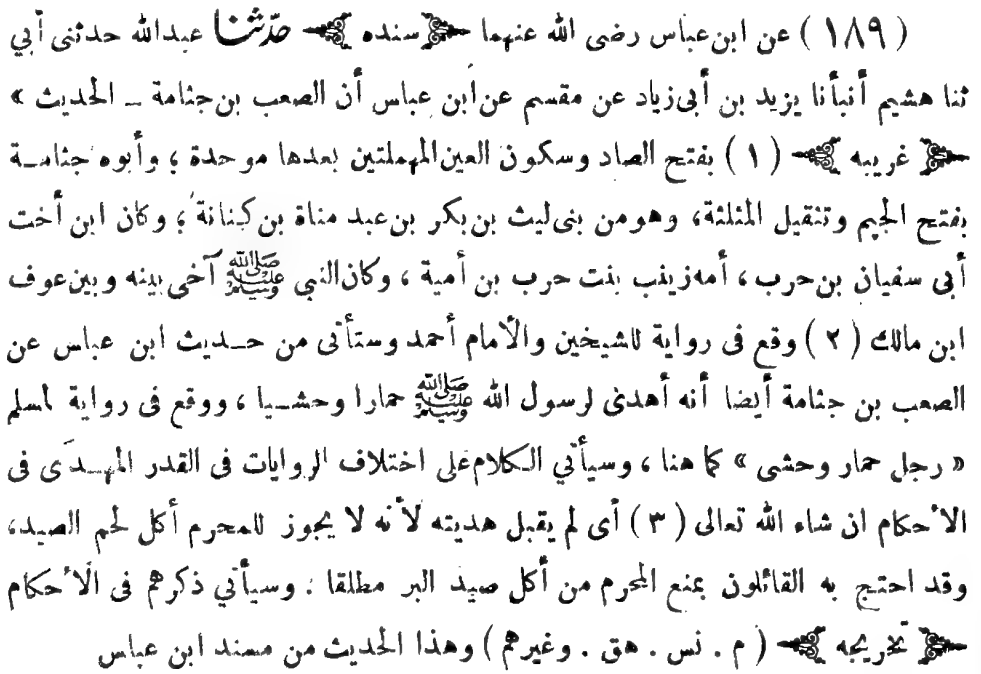 (١٨٩) عن ابن عباس رضى الله عنهما ﴿سنده﴾ حدّثنا عبدالله حدثنى أبي
ثنا هشيم أنبأنا يزيد بن أبى زياد عن مقسم عن ابن عباس أن الصعب بن جثامة ــ الحديث »
﴿غريبه﴾ (١) بفتح الصاد وسكون العين المهملتين بعدها موحدة ؛ وأبوه جثامــة
بفتح الجيم وتثقيل المثلثة، وهو من بنى ليث بن بكر بن عبد مناة بن كنانة ؛ وكان ابن أخت
أبى سفيان بن حرب ، أمه زينب بنت حرب بن أمية ، وكان النبي ﷺ آخى بينه وبين عوف
ابن مالك (٢) وقع فى رواية للشيخين والأمام أحمد وستأتى من حــديث ابن عباس عن
الصعب بن جثامة أيضا أنه أهدى لرسول الله ﷺ حمارا وحشــيا ، ووقع فى رواية لمسلم
« رجل حمار وحشى » كما هنا ، وسيأتي الــكلام على اختلاف الروايات فى القدر المهــدَى فى
الأحكام ان شاء الله تعالى (٣) أى لم يقبل هديته لأنه لا يجوز للمحرم أكل لحم الصيد،
وقد احتج به القائلون بمنع المحرم من أكل صيد البر مطلقا : وسيأتي ذكرهم فى الأحكام
﴿تخريجه﴾ (م . نس . هق . وغيرهم) وهذا الحديث من مسند ابن عباس